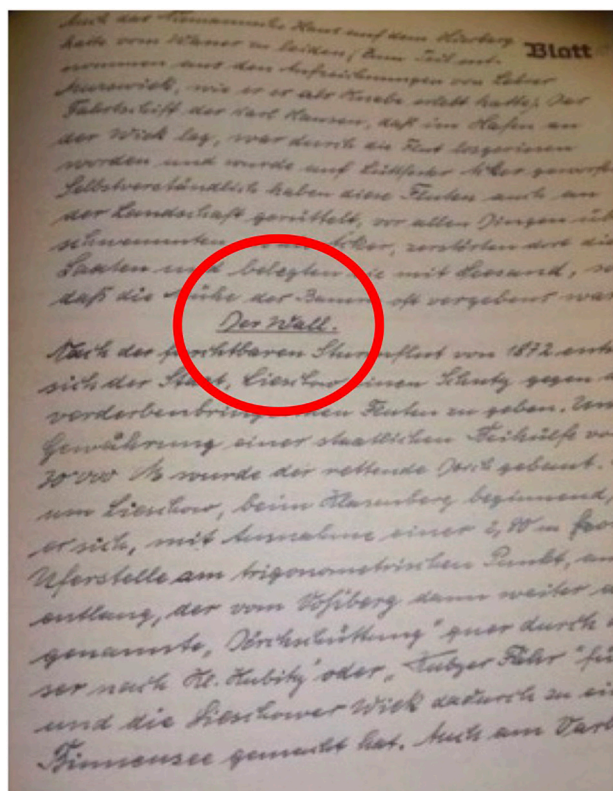 Auch das Niemannsche Haus auf dem
hatte vom Wasser zu leiden, zum Teil ent-
Blatt
nommen aus den Aufzeichnungen von Lehrer
Murswiek, wie er er als Knabe erlebt hatte). Das
der Karl Hansen, daß im Hafen an
der Wiek lag, war durch die Flut losgerissen
worden und wurde auf Acker geworf
Selbstverständlich haben diese Fluten auch an
der Landschaft gerüttelt, vor allen Dingen üb
schwemmten Acker, zerstörten dort die
Saaten und belegten sie mit Seesand, so
daß die Mühe der Bauern oft vergebens war
Der Wall.
Nach der furchtbaren Sturmflut von 1872 ents
sich der Staat, Lieschow einen Schutz gegen d
verderbenbringenden Fluten zu geben. Unt
Gewährung einer staatlichen Beihülfe vo
30 000 M wurde der rettende Deich gebaut.
um Lieschow, beim Hasenberg beginnend,
er sich, mit Ausnahme einer 2,80 m
Uferstelle am trigonometrischen Punkt, am
entlang, der vom Voßberg dann weiter a
genannte, Deichschüttung" quer durch d
ser nach Kl. Kubitz oder „Kubzer Fähr" fü
und die Lieschower Wiek dadurch zu ei
Binnensee gemacht hat. Auch am